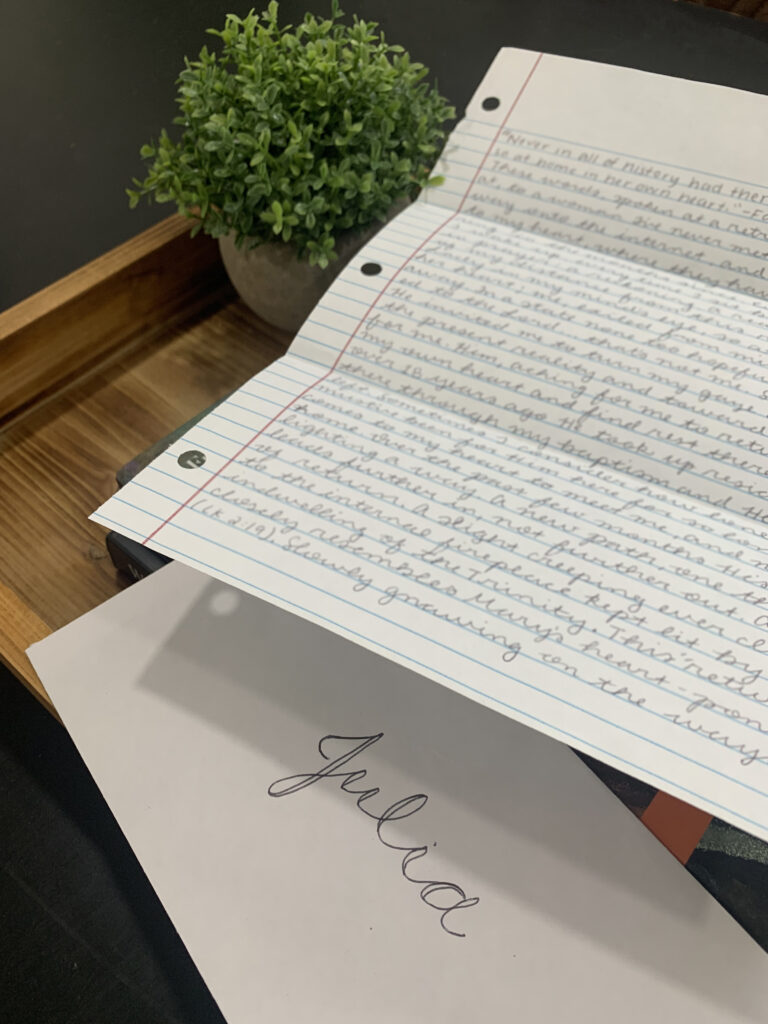 "Never in all of history had ther
so at home in her own heart."-Fa
These words, spoken at a retr
at, to a woman I've never met
way onto the internet and
to my heart where they hav
away. In a state now so hopeful
He invited me to turn my gaze
the present reality and toward
for me. Him aching for me to retu
my own heart and find rest there
over 18 years ago He took up resid
there through my baptism and th
sometimes I consider how lone
must've been for Him here for so lon
comes to my heart to meet me, and n
home. Over the past few months He's
lighting a way, a new path, one th
leads further in not further out. a
return. A slight creeping ever cl
to the internal fireplace kept lit by
indwelling of the Trinity. This "retu
closely resembles Mary's heart-pon
(Lk 2:19) Slowly gnawing on the ways
Julia